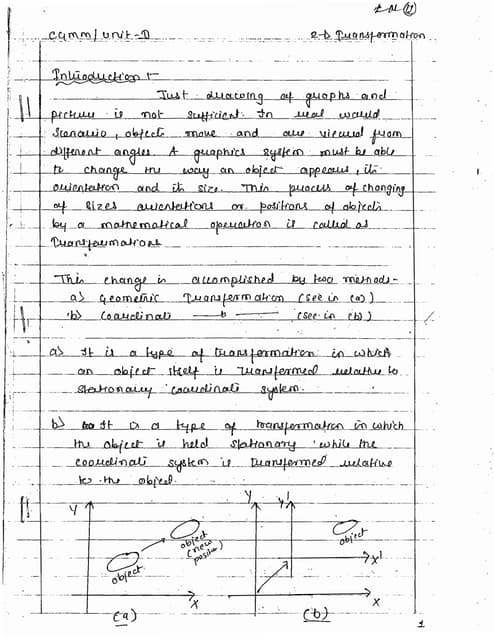 CGMM/Unit-D 2-D Transformation
Introduction :-
Just drawing of graphs and
picture is not sufficient. In real world
scenario, objects move and are viewed from
different angles. A graphics system must be able
to change the way an object appears, its
orientation and its size. This process of changing
of sizes orientations or positions of objects
by a mathematical operation is called as
Transformations
This change is accomplished by two methods-
a) Geometric Transformation (see in (a))
b) Coordinate —— " —— (see in (b))
a) It is a type of transformation in which
an object itself is transformed relative to
stationary coordinate system.
b) It is a type of transformation in which
the object is held stationary while the
coordinate system is transformed relative
to the object.
Y
object
object
(new
position)
X
(a)
Y
Y'
object
X'
X
(b)
1